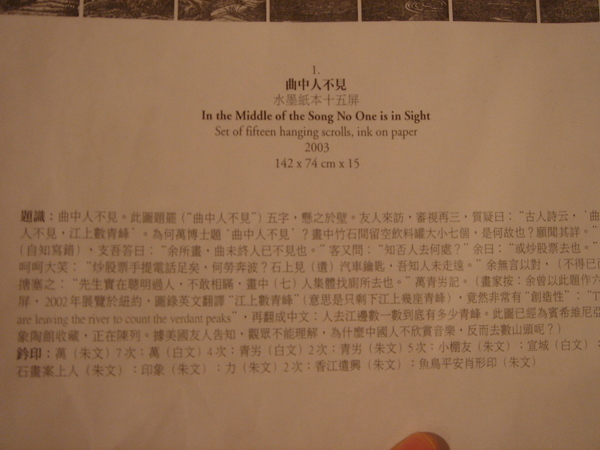 1.
曲中人不見
水墨紙本十五屏
In the Middle of the Song No One is in Sight
Set of fifteen hanging scrolls, ink on paper
2003
142 x 74 cm x 15
題識：曲中人不見。此圖題罷（“曲中人不見”）五字，懸之於壁。友人來訪，審視再三，質疑曰：“古人詩云，‘曲
人不見，江上數青峰’。為何萬博士題‘曲中人不見’？畫中竹石間留空飲料罐大小七個，是何故也？願聞其詳。”
（自知寫錯），支吾答曰：“余所畫，曲未終人已不見也。”客又問：“知否人去何處？”余曰：“或炒股票去也。”
呵呵大笑：“炒股票手提電話足矣，何勞奔波？石上見（遺）汽車鑰匙，吾知人未走遠。”余無言以對，（不得已
搪塞之：“先生實在聰明過人，不敢相瞞，畫中（七）人集體找廁所去也。”萬青屴記。（畫家按：余曾以此題作六
屏，2002年展覽於紐約，圖錄英文翻譯“江上數青峰”（意思是只剩下江上幾座青峰），竟然非常有“創造性”：“T
are leaving the river to count the verdant peaks”，再翻成中文：人去江邊數一數到底有多少青峰。此圖已經為賓希維尼亞
象陶館收藏，正在陳列。據美國友人告知，觀眾不能理解，為什麼中國人不欣賞音樂，反而去數山頭呢？）
鈐印：萬（朱文）7次；萬（白文）4次；青屴（白文）2次；青屴（朱文）5次；小棚友（朱文）；宣城（白文）；
石畫案上人（朱文）；印象（朱文）；力（朱文）2次；香江遺興（朱文）；魚鳥平安肖形印（朱文）